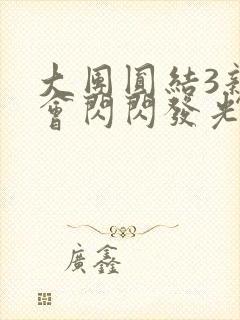 大團圓結3新
會閃閃發光
廣鑫